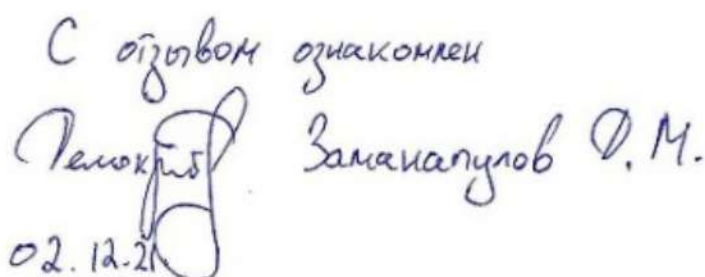 С отзывом ознакомлен
Демокрит Заманапулов Д. М.
02.12.21